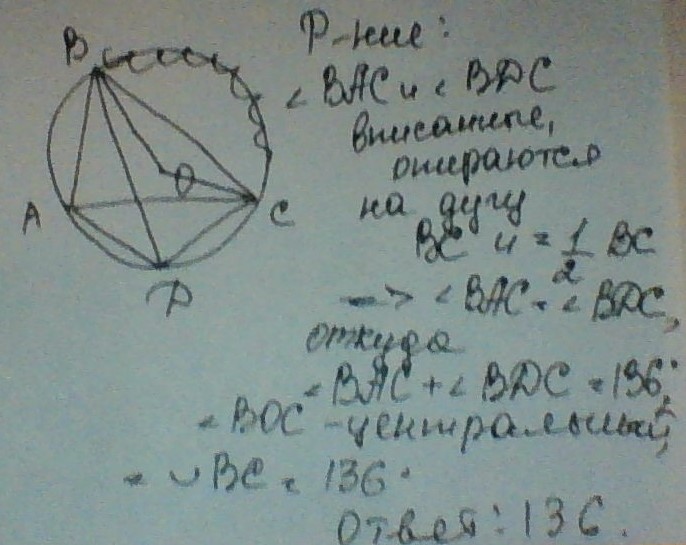 Р-ние:
B
∠ BAC и ∠ BDC
вписанные,
опираются
O
A
C
на дугу
BC и = 1/2 BC
D
=> ∠ BAC = ∠ BDC,
откуда
∠ BAC + ∠ BDC = 136°,
∠ BOC - центральный,
= ∪ BC = 136°
Ответ: 136.